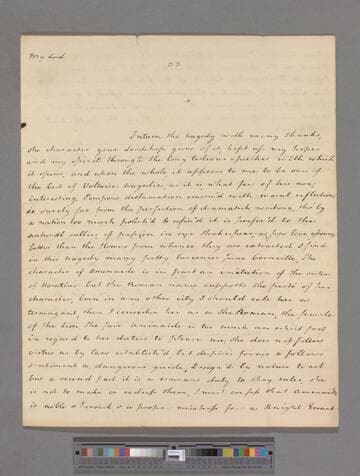 My Lord
I return the tragedy with many thanks,
the character your Lordship gives of it, kept up my hopes
and my spirit through the long tedious speeches with which
it opens, and upon the whole it appears to me to be one of
the best of Voltaires tragedies, as it is what few of his are,
interesting. Pompous declamation with moral reflections
is surely far from the perfection of dramatick writing, tho' by
a nation too much polish'd & refin'd it is prefer'd to the
natural sallies of passion in our Shakespear, as fops love essences
better than the flowers from whence they are extracted. I find
in this tragedy many petty larcenies from Corneille, the
character of Amenaide is in part an imitation of the sister
of Horatius but the Roman name supports the of her
character, born in any other city I should call her a
termagant, then I consider her as a She Roman, the female
of the Lion. The fair amenaide is too much an esprit fort
in regard to her duties to please me, she does not follow
virtue as by law establish'd but despises forms & follows
sentiment a dangerous guide. Design'd by nature to act
but a second part it is a womans duty to obey rules, she
is not to make or redress them, I must confess that amenaide
is noble & heroick & a proper mistress for a Knight Errant